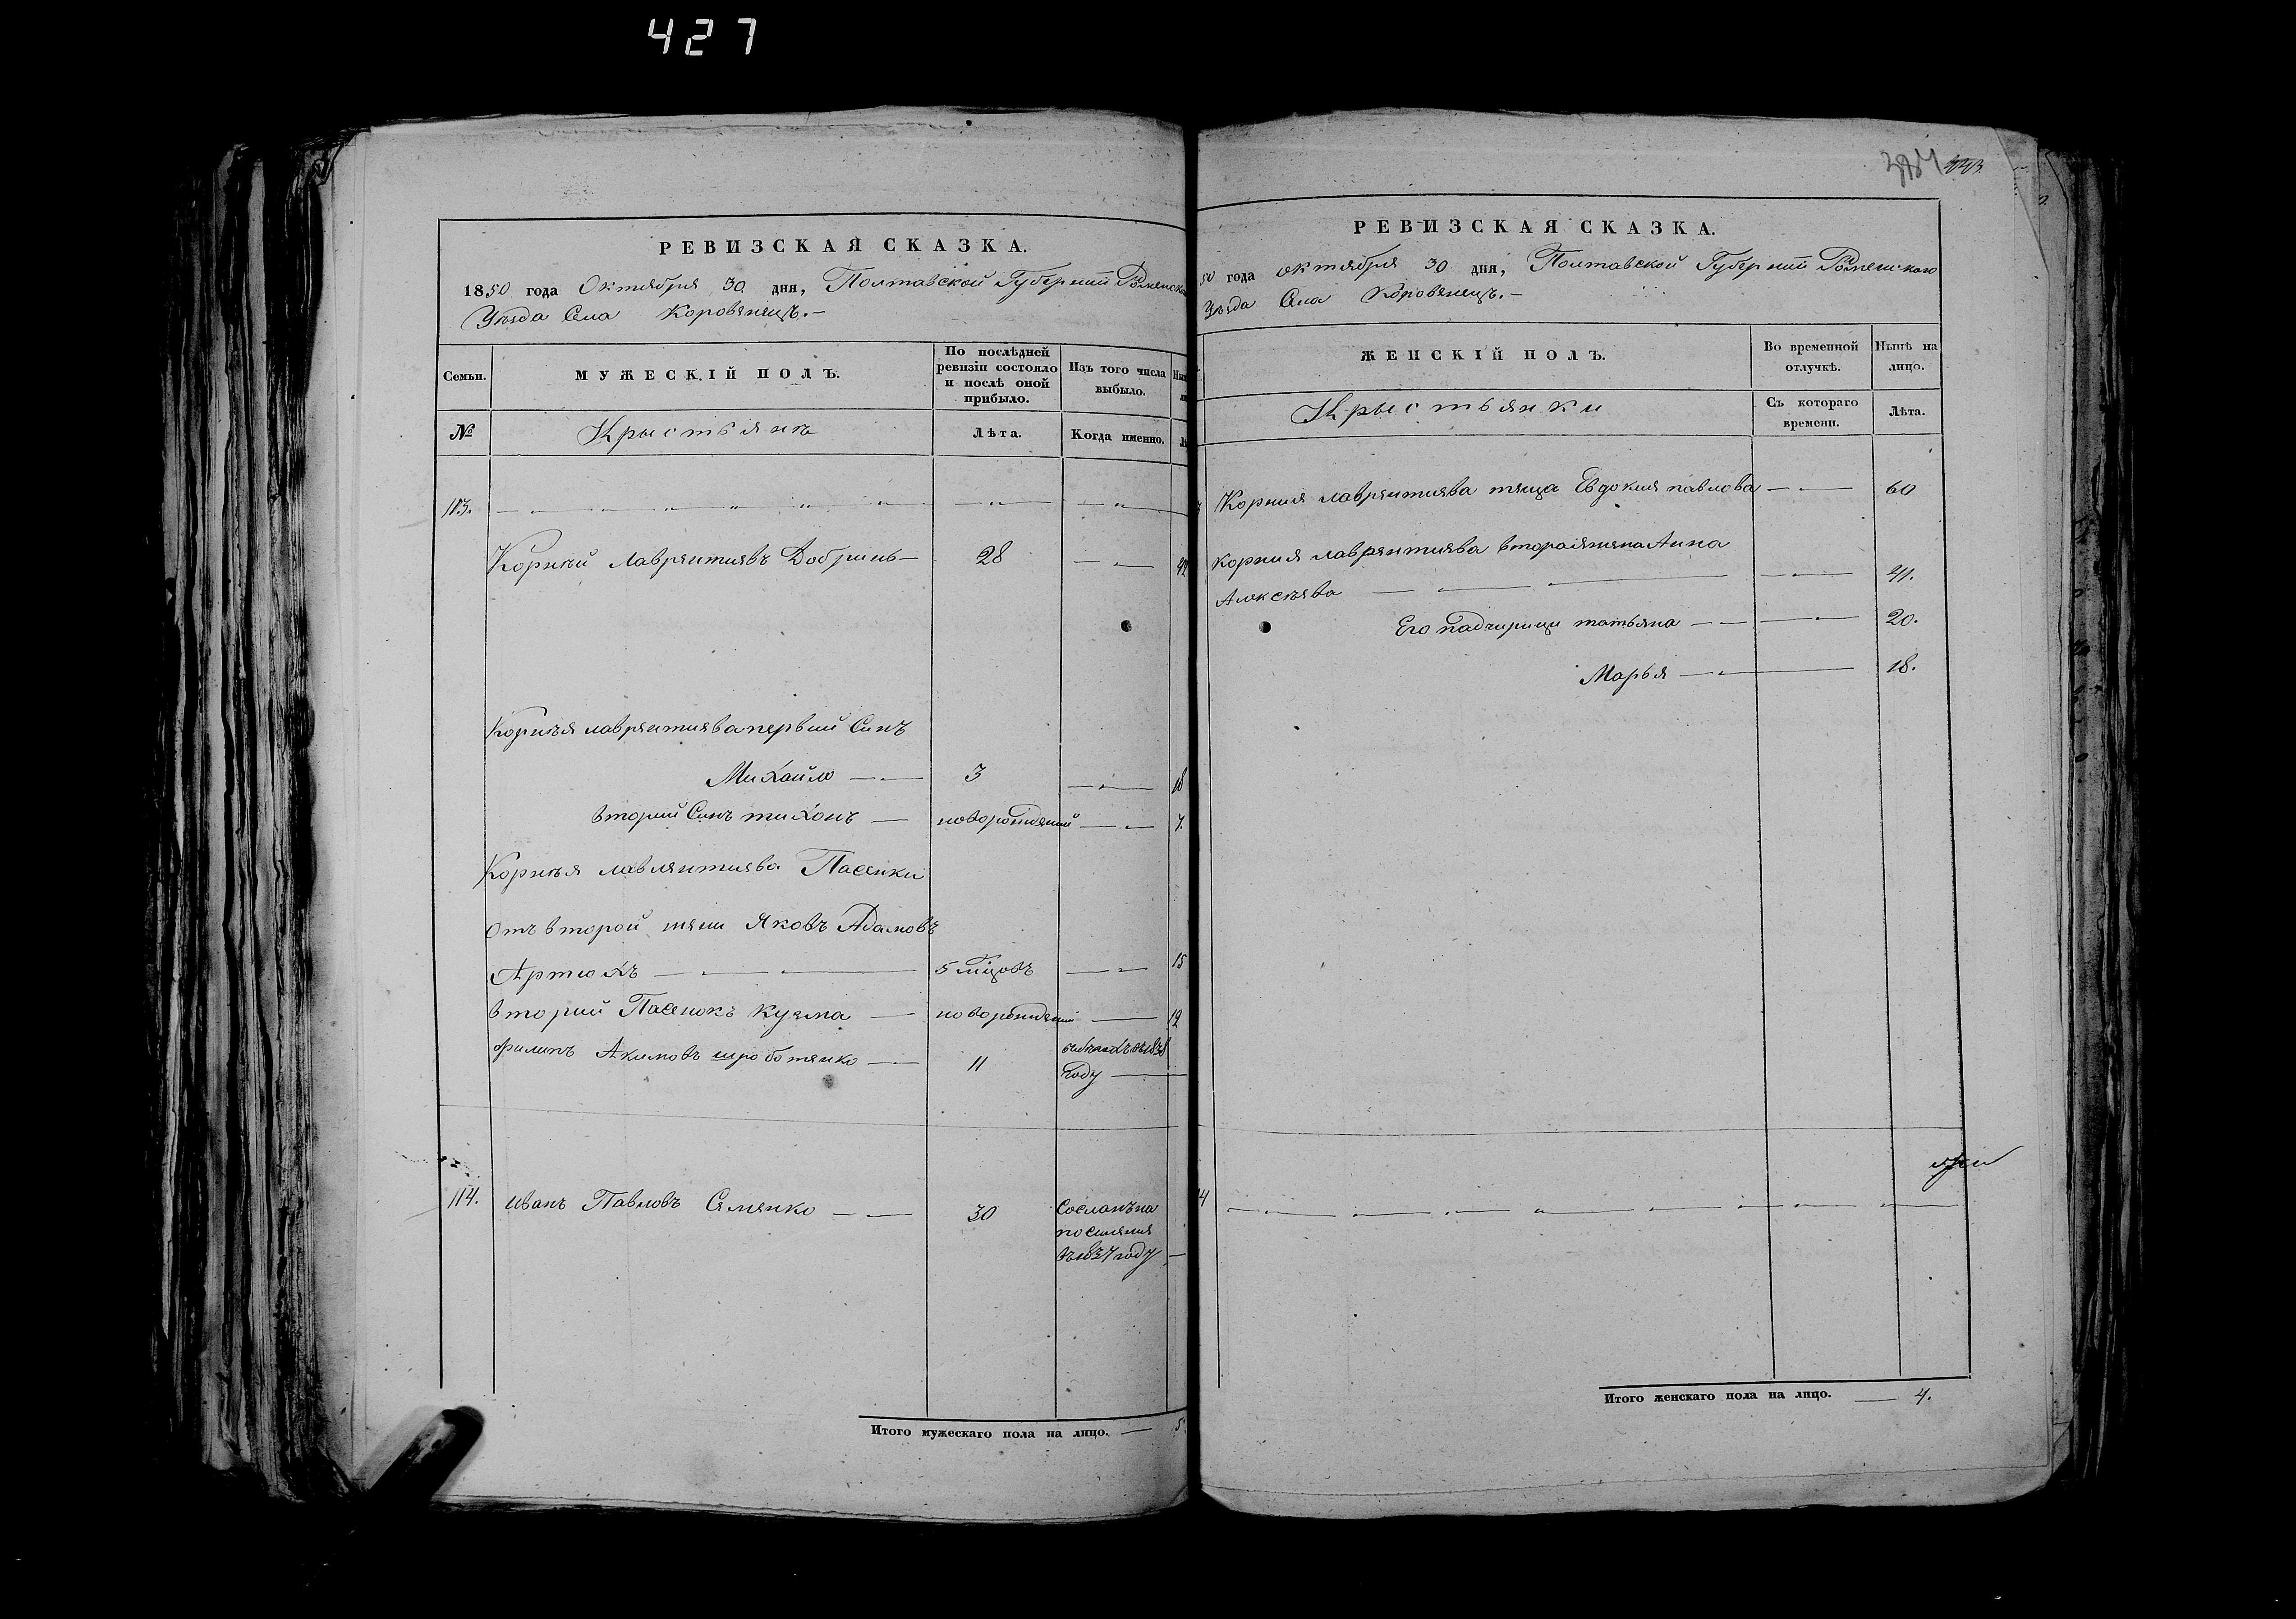 427
РЕВИЗСКАЯ СКАЗКА.
1850 года Октября 30 дня, Полтавской Губерніи
Уѣзда Села Коровянецъ.—
Семьи.
МУЖЕСКІЙ ПОЛЪ.
По послѣдней ревизіи состояло и послѣ оной прибыло.
Изъ того числа выбыло.
№
Крыстьянъ
Лѣта.
Когда именно.
113.
Корнѣй Лаврянтиявъ Добринь — 28
Корнѣя лаврянтиява первий Синъ
Михайло — 3 18
вторий Синъ тихонъ — новорожденый 7.
Корнѣя лавлянтиява Пасинки
Отъ второй жяни Яковъ Адамовъ
Артюхъ — 5 мѣцовъ 15
вторий Пасинокъ Кузма — 12
Филипъ Акимовъ — 11
году —
114. Иванъ Павловъ Сямянко — 30 Сосланъ на
посиляния
въ 1837 году —
Итого мужескаго пола на лицо. — 5
443.
РЕВИЗСКАЯ СКАЗКА.
50 года октября 30 дня, Полтавской Губерніи
Уѣзда Села Коровянецъ.—
ЖЕНСКІЙ ПОЛЪ.
Во временной отлучкѣ.
Нынѣ на лицо.
Крыстьянки
Съ котораго времени.
Лѣта.
Корния лаврянтиява тяща Евдокия павлова — 60
корния лаврянтиява вторая жяна Анна
Алоксѣява — 41.
Его Падчирици татьяна — 20.
Марья — 18.
Итого женскаго пола на лицо. — 4.